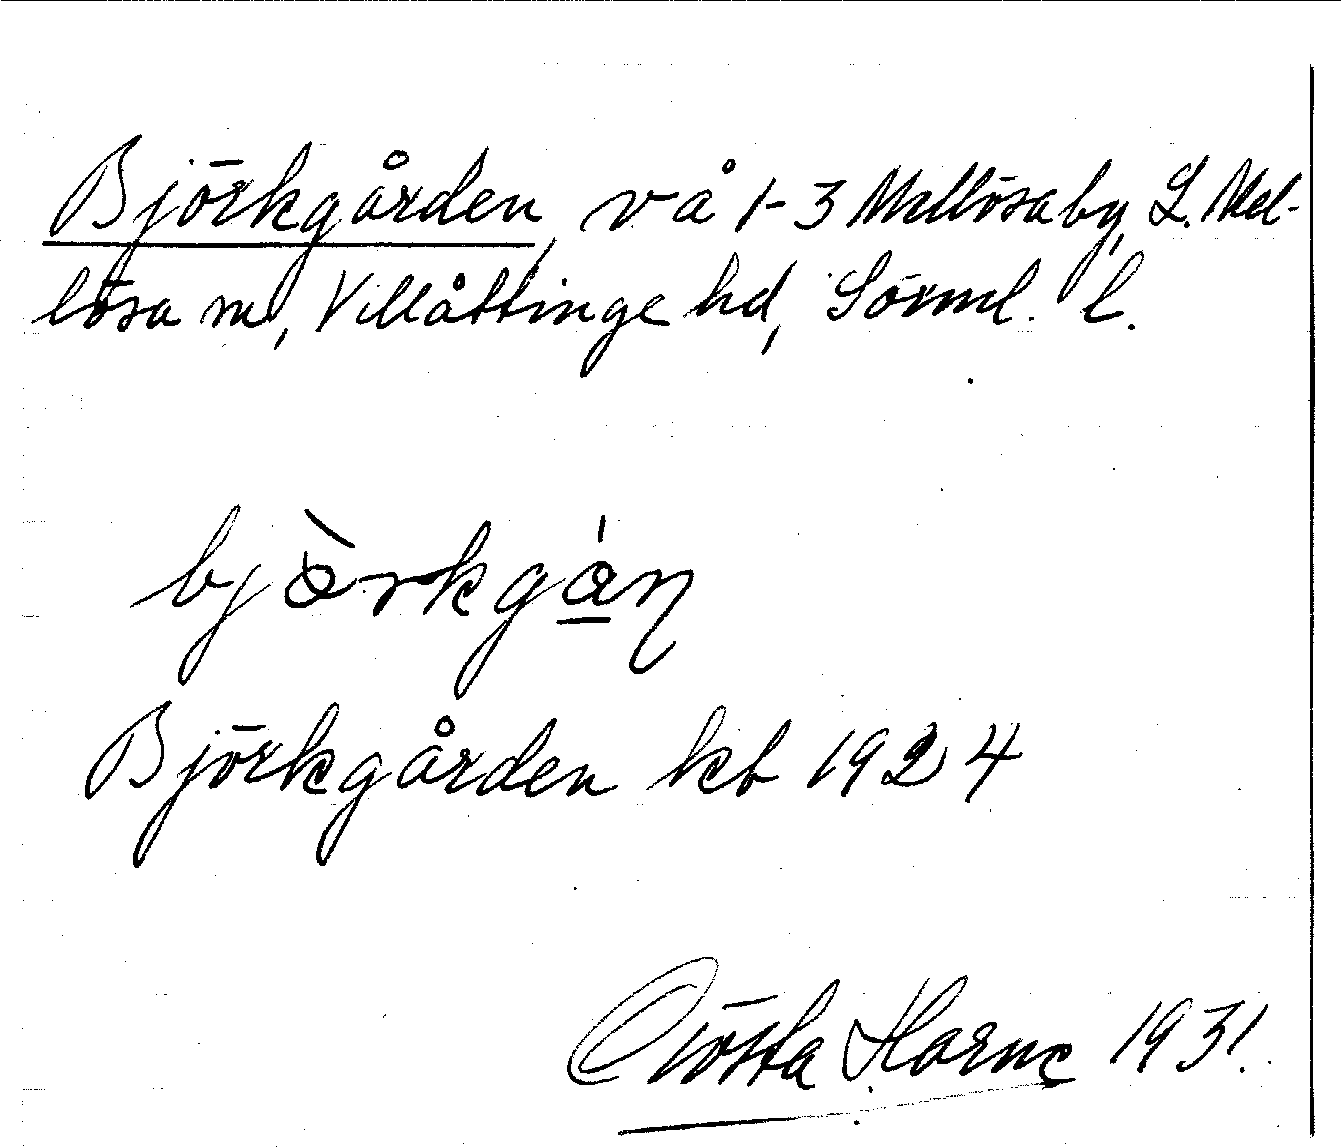 Björkgården, vå 1-3 Mellösaby, L. Mel-
lösa sn, Villåttinge hd, Sörml. l.
bjòrkgán
Björkgården kb 1924
Gösta Horne 1931.